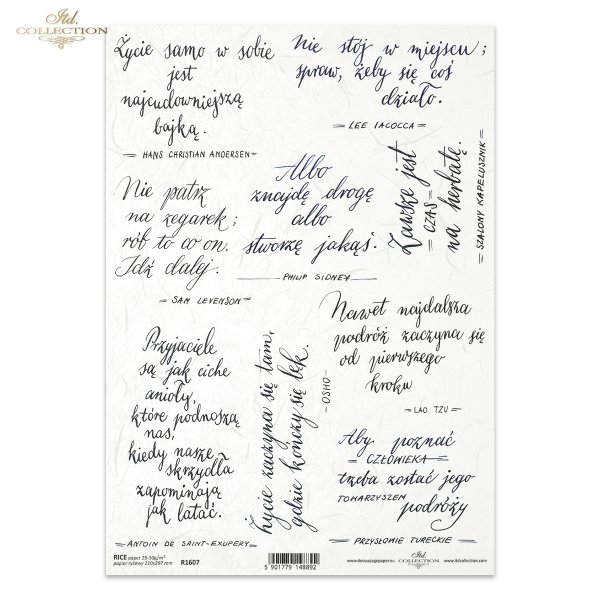 Itd.
COLLECTION
Życie samo w sobie
jest
najcudowniejszą
bajką.
HANS CHRISTIAN ANDERSEN
Nie stój w miejscu;
spraw, żeby się coś
działo.
LEE IACOCCA
Nie patrz
na zegarek;
rób to co on.
Idź dalej.
SAM LEVENSON
Albo
znajdę drogę
albo
stworzę jakąś.
PHILIP SIDNEY
Zawsze jest
CZAS
na herbatę.
SZALONY KAPELUSZNIK
Przyjaciele
są jak ciche
anioły,
które podnoszą
nas,
kiedy nasze
skrzydła
zapominają
jak latać.
ANTOIN DE SAINT-EXUPERY
Życie zaczyna się tam,
gdzie kończy się lęk.
OSHO
Nawet najdalsza
podróż zaczyna się
od pierwszego
kroku
LAO TZU
Aby poznać
CZŁOWIEKA
trzeba zostać jego
TOWARZYSZEM
podróży
PRZYSŁOWIE TURECKIE
RICE paper 25-30g/m²
papier ryżowy 210x297 mm R1607
5 901779 148892
www.decoupagepaper.eu
Itd.
COLLECTION
www.itdcollection.com